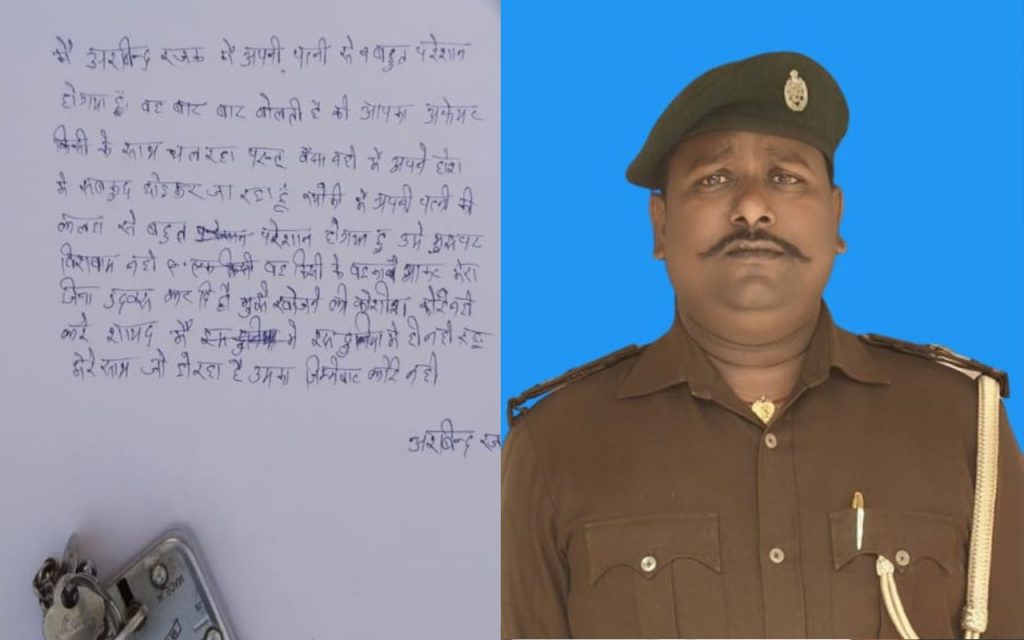 मैं अरबिन्द रजक मैं अपनी पत्नी से बहुत परेशान
हो गया हूँ। वह बार बार बोलती है की आपका अफेयर
किसी के साथ चल रहा परन्तु ऐसा नहीं मैं अपने होश
में सबकुछ छोड़कर जा रहा हूँ क्योंकी मैं अपनी पत्नी की
कलह से बहुत परेशान हो गया हूँ उसे मुझपर
विश्वास नहीं वह किसी के बहकावे आकर मेरा
जिना दुश्वार कर दि है मुझे खोजने की कोशिश कोई नहीं
करे शायद मैं इस दुनिया में ही नहीं रहूँ
मेरे साथ जो हो रहा है उसका जिम्मेवार कोई नहीं
अरबिन्द रज